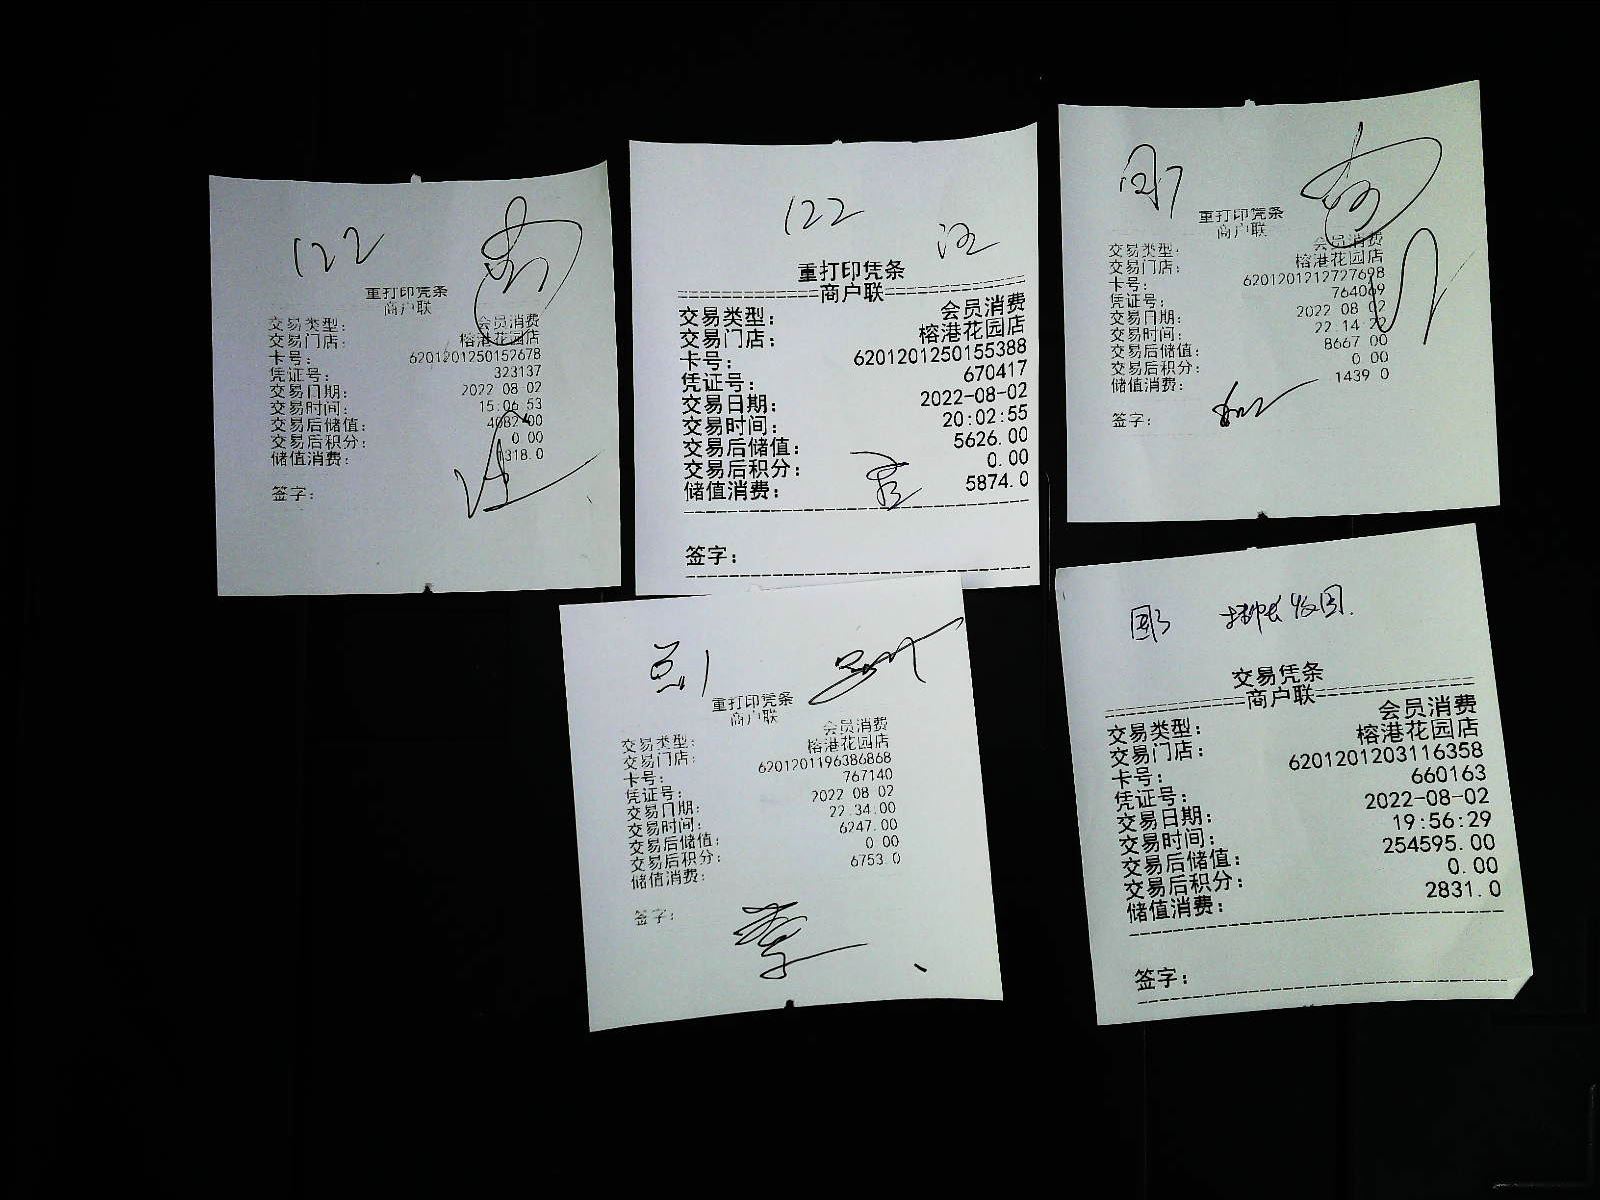 122
重打印凭条
商户联
交易类型： 会员消费
交易门店： 榕港花园店
卡号： 6201201250152678
凭证号： 323137
交易日期： 2022 08 02
交易时间： 15:06 53
交易后储值： 4082 00
交易后积分： 0 00
储值消费： 1318.0
签字：
122
汪
重打印凭条
商户联
交易类型： 会员消费
交易门店： 榕港花园店
卡号： 6201201250155388
凭证号： 670417
交易日期： 2022-08-02
交易时间： 20:02:55
交易后储值： 5626.00
交易后积分： 0.00
储值消费： 5874.0
签字：
重打印凭条
商户联
交易类型： 会员消费
交易门店： 榕港花园店
卡号： 6201201212727698
凭证号： 764069
交易日期： 2022 08 02
交易时间： 22 14 22
交易后储值： 8667 00
交易后积分： 0 00
储值消费： 1439 0
签字：
重打印凭条
商户联
交易类型： 会员消费
交易门店： 榕港花园店
卡号： 6201201196386868
凭证号： 767140
交易日期： 2022 08 02
交易时间： 22.34.00
交易后储值： 6247.00
交易后积分： 0 00
储值消费： 6753.0
签字：
李
交易凭条
商户联
交易类型： 会员消费
交易门店： 榕港花园店
卡号： 6201201203116358
凭证号： 660163
交易日期： 2022-08-02
交易时间： 19:56:29
交易后储值： 254595.00
交易后积分： 0.00
储值消费： 2831.0
签字：